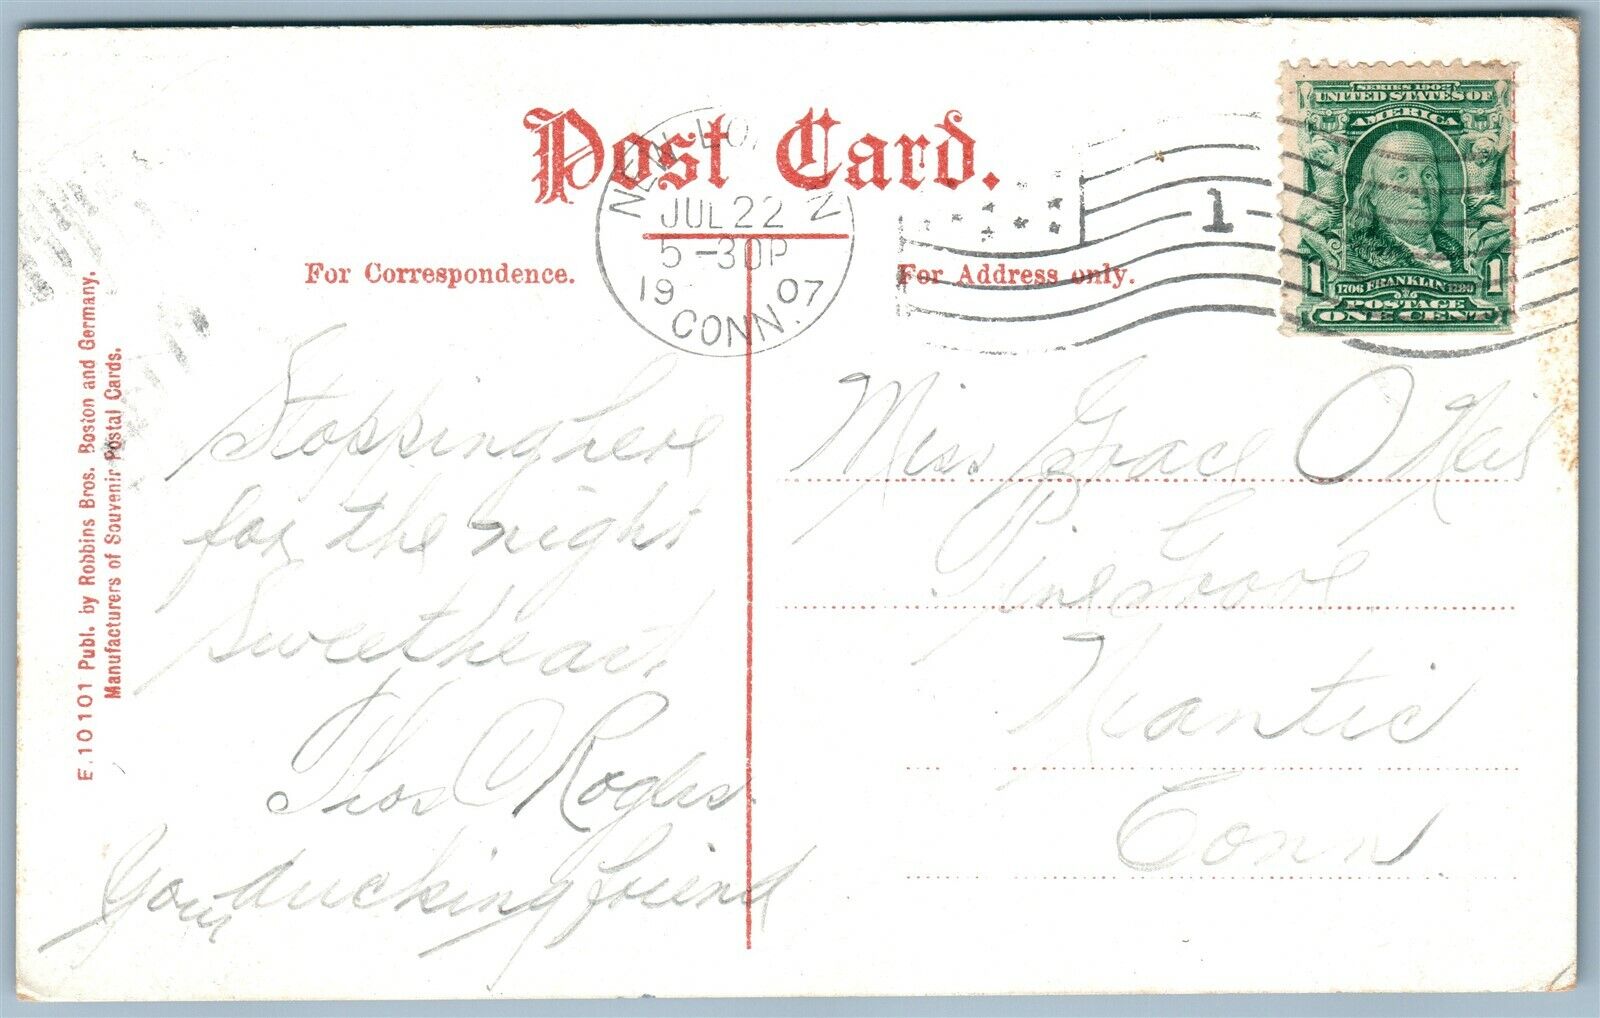 Post Card.
NEW LON N
JUL 22
5-30P
19 07
CONN.
1
SERIES 1902
UNITED STATES OF
AMERICA
1 1706 FRANKLIN 1790 1
POSTAGE
ONE CENT
For Correspondence.
For Address only.
E.10101 Publ. by Robbins Bros. Boston and Germany.
Manufacturers of Souvenir Postal Cards.
Stopping here
for the night
Sweetheart
Thos C
Your ducking friend
Miss Grace O Neil
Pine Grove
Niantic
Conn